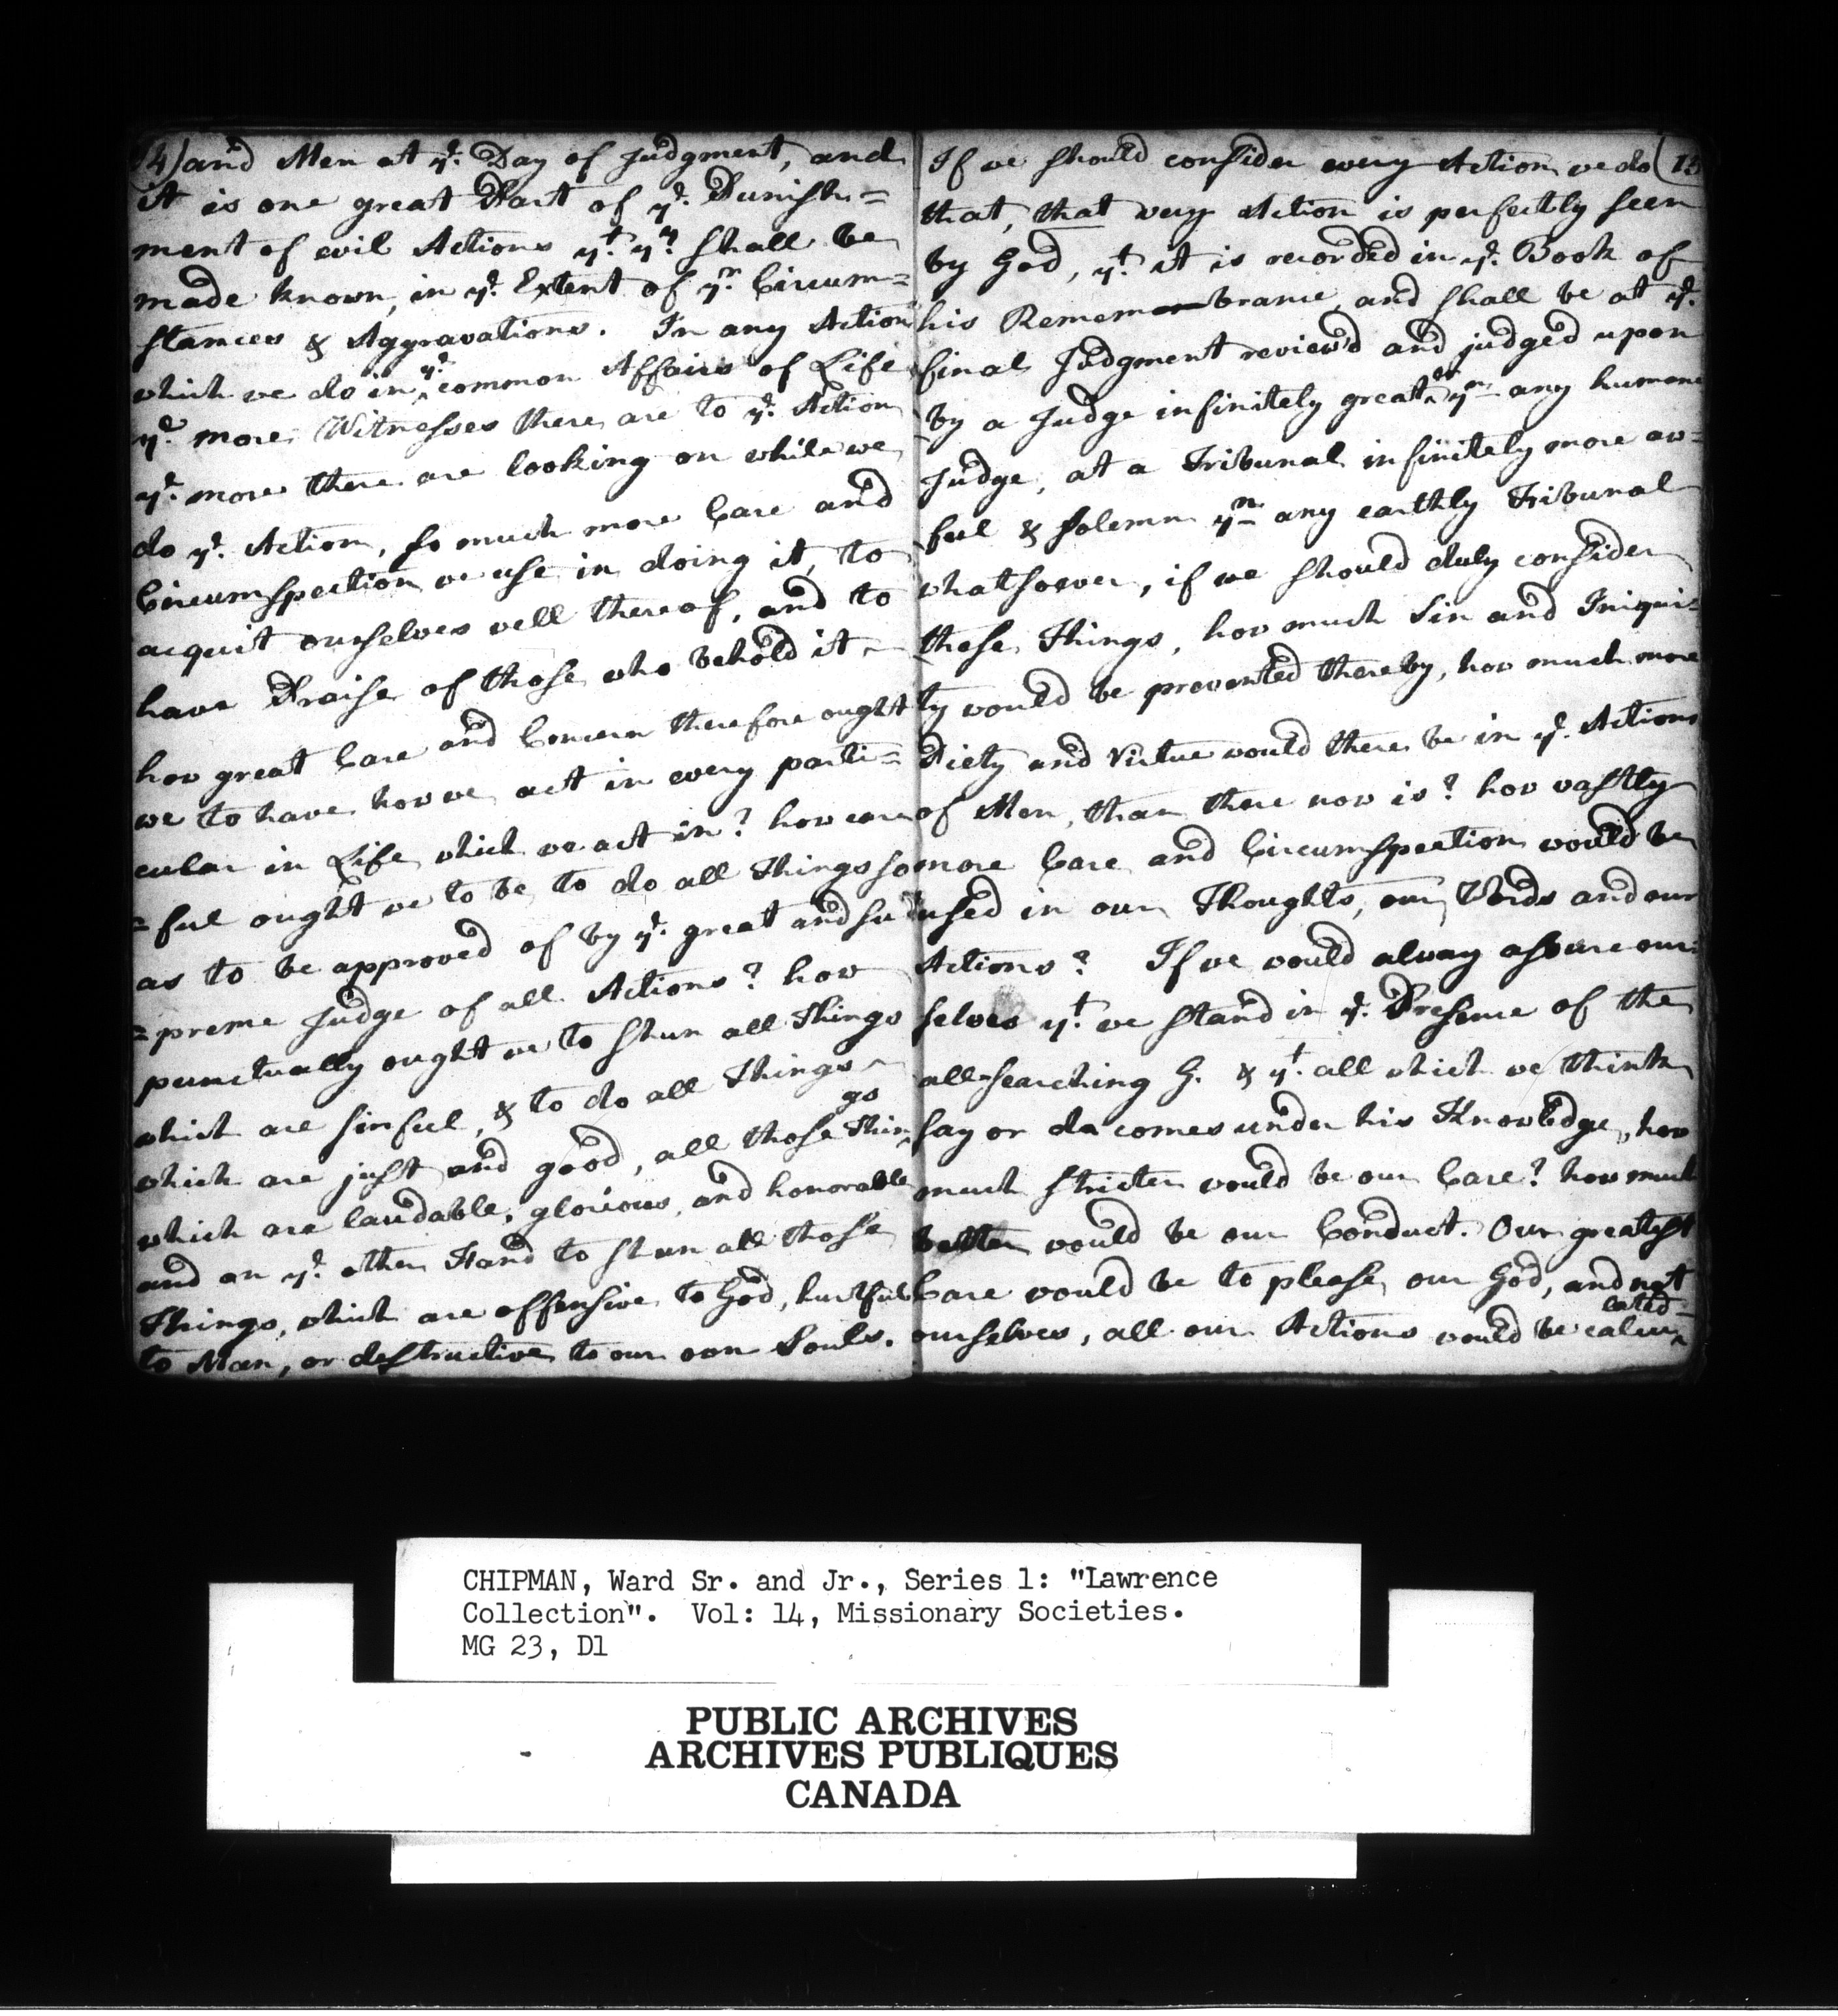 14) and Men at yᵉ. Day of Judgment, and
it is one great Part of yᵉ. Punish=
ment of evil Actions yᵗ. yʸ. shall be
made known, in yᵉ. Extent of yʳ. Circum=
stances & Aggravations. In any Action
which we do in yᵉ. common Affairs of Life
yᵉ. more Witnesses there are to yᵉ. Action
yᵉ. more there are looking on while we
do yᵉ. Action, so much more Care and
Circumspection we use in doing it, to
acquit ourselves well thereof, and to
have Praise of those who behold it
how great Care and Concern therefore ought
we to have how we act in every parti=
cular in Life which we act in? how care
=ful ought we to be, to do all Things so
as to be approved of by yᵉ. great and su
=preme Judge of all Actions? how
punctually ought we to shun all Things
which are sinful, & to do all Things
which are just and good, all those Things
which are laudable, glorious, and honorable
and on yᵉ. other Hand to shun all those
Things, which are offensive to God, hurtful
to Man, or destructive to our own Souls.
If we should consider every Action we do (15
that, that very Action is perfectly seen
by God, yᵗ. it is recorded in yᵉ. Book of
his Remembrance, and shall be at yᵉ.
final Judgment review'd and judged upon
by a Judge infinitely greater yⁿ any humane
Judge, at a Tribunal infinitely more aw=
ful & solemn yⁿ any earthly Tribunal
whatsoever, if we should duly consider
these Things, how much Sin and Iniqui=
ty would be prevented thereby, how much more
Piety and Virtue would there be in yᵉ. Actions
of Men, than there now is? how vastly
more Care and Circumspection would be
used in our Thoughts, our Words and our
Actions? If we would alway assure our=
selves yᵗ. we stand in yᵉ. Presence of the
all-searching G. & yᵗ. all which we think
say or do comes under his Knowledge, how
much stricter would be our Care? how much
better would be our Conduct. Our greatest
Care would be to please our God, and not
ourselves, all our Actions would be calculated
CHIPMAN, Ward Sr. and Jr., Series 1: "Lawrence
Collection". Vol: 14, Missionary Societies.
MG 23, D1
PUBLIC ARCHIVES
ARCHIVES PUBLIQUES
CANADA